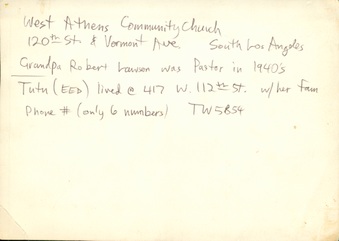 West Athens Community Church
120th St & Vermont Ave South Los Angeles
Grandpa Robert Lawson was Pastor in 1940's
Tutu (EED) lived @ 417 W. 112th St. w/her fam
Phone # (only 6 numbers) TW5854